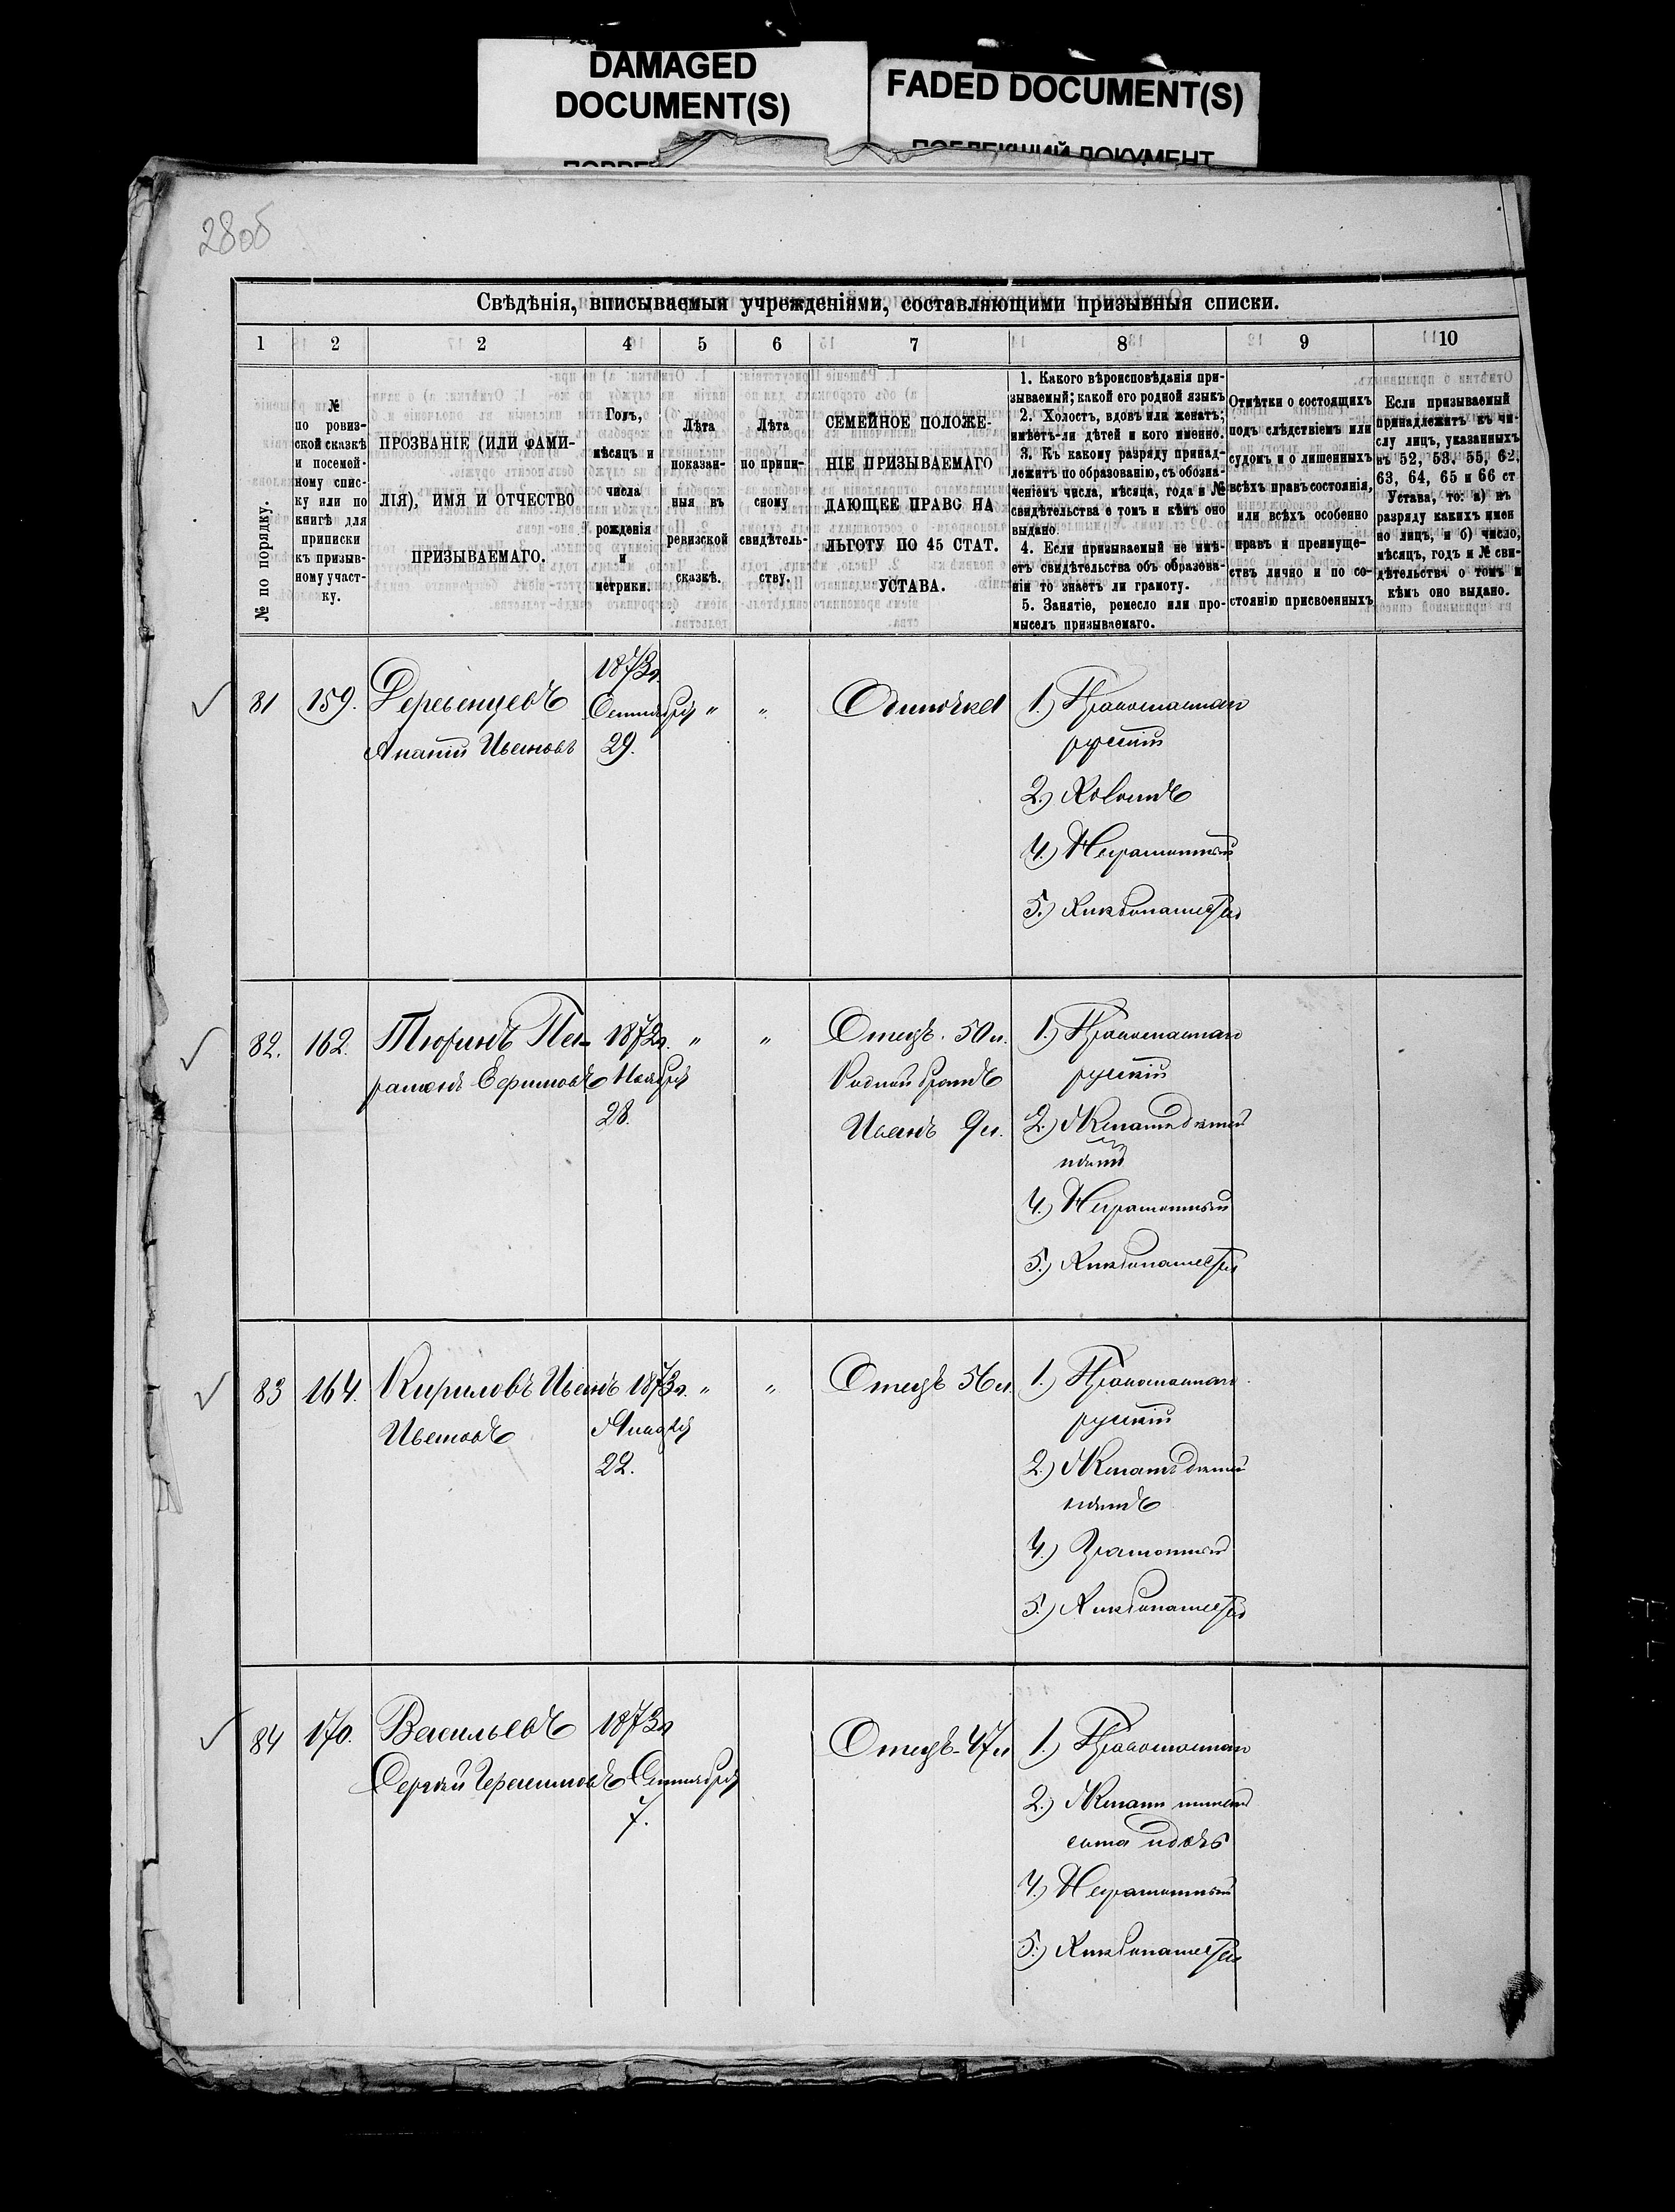 DAMAGED
DOCUMENT(S)
FADED DOCUMENT(S)
ПОБЛЕКШИЙ ДОКУМЕНТ
28об
Свѣдѣнія, вписываемыя учрежденіями, составляющими призывныя списки.
1 2 2 4 5 6 7 8 9 10
№ по порядку.
№
по ровиз-
ской сказкѣ
и посемей-
ному спис-
ку или по
книгѣ для
приписки
къ призыв-
ному участ-
ку.
ПРОЗВАНІЕ (ИЛИ ФАМИ-
ЛІЯ), ИМЯ И ОТЧЕСТВО
ПРИЗЫВАЕМАГО.
Годъ,
мѣсяцъ и
числа
рожденія
и
метрики.
Лѣта
показан-
ныя въ
ревизской
сказкѣ.
Лѣта
по припи-
сному
свидѣтель-
ству.
СЕМЕЙНОЕ ПОЛОЖЕ-
НІЕ ПРИЗЫВАЕМАГО
ДАЮЩЕЕ ПРАВО НА
ЛЬГОТУ ПО 45 СТАТ.
УСТАВА.
1. Какого вѣроисповѣданія при-
зываемый; какой его родной языкъ
2. Холостъ, вдовъ или женатъ;
имѣетъ-ли дѣтей и кого именно.
3. Къ какому разряду принад-
лежитъ по образованію, съ обозна-
ченіемъ числа, мѣсяца, года и №
свидѣтельства о томъ и кѣмъ оно
выдано.
4. Если призываемый не имѣ-
етъ свидѣтельства объ образова-
ніи то знаетъ ли грамоту.
5. Занятіе, ремесло или про-
мыселъ призываемаго.
Отмѣтки о состоящихъ
подъ слѣдствіемъ или
судомъ и о лишенныхъ
всѣхъ правъ состоянія,
или всѣхъ особенно
правъ и преимуще-
ствъ лично и по со-
стоянію присвоенныхъ
Если призываемый
принадлежитъ къ чи-
слу лицъ, указанныхъ
въ 52, 53, 55, 62,
63, 64, 65 и 66 ст
Устава, то: а) къ
разряду какихъ имен
но лицъ, и б) число,
мѣсяцъ, годъ и № сви-
дѣтельства о томъ и
кѣмъ оно выдано.
81 159. Деревенцевъ
Ананій Ивановъ
1873г.
Сентября
29.
" "
Одиночка
1.) Православнаго
русскій
2.) Холостъ
4.) Неграмотный
5.) Хлѣбопашество
82. 162. Тюринъ
Ефимовъ
1872г.
Ноября
28.
" "
Отецъ. 50л.
Родной братъ
Иванъ 9л.
1.) Православнаго
русскій
2.) Женатъ дѣтей
нѣтъ
4.) Неграмотный
5.) Хлѣбопашество
83 164. Кириловъ Иванъ
Ивановъ
1873г.
Января
22.
" "
Отецъ 56л.
1.) Православнаго
русскій
2.) Женатъ дѣтей
нѣтъ
4.) Грамотный
5.) Хлѣбопашество
84 170. Васильевъ
Сергѣй Герасимовъ
1873г
Сентября
7.
Отецъ-47л
1.) Православнаго
2.) Женатъ имѣетъ
сына
4.) Неграмотный
5.) Хлѣбопашество